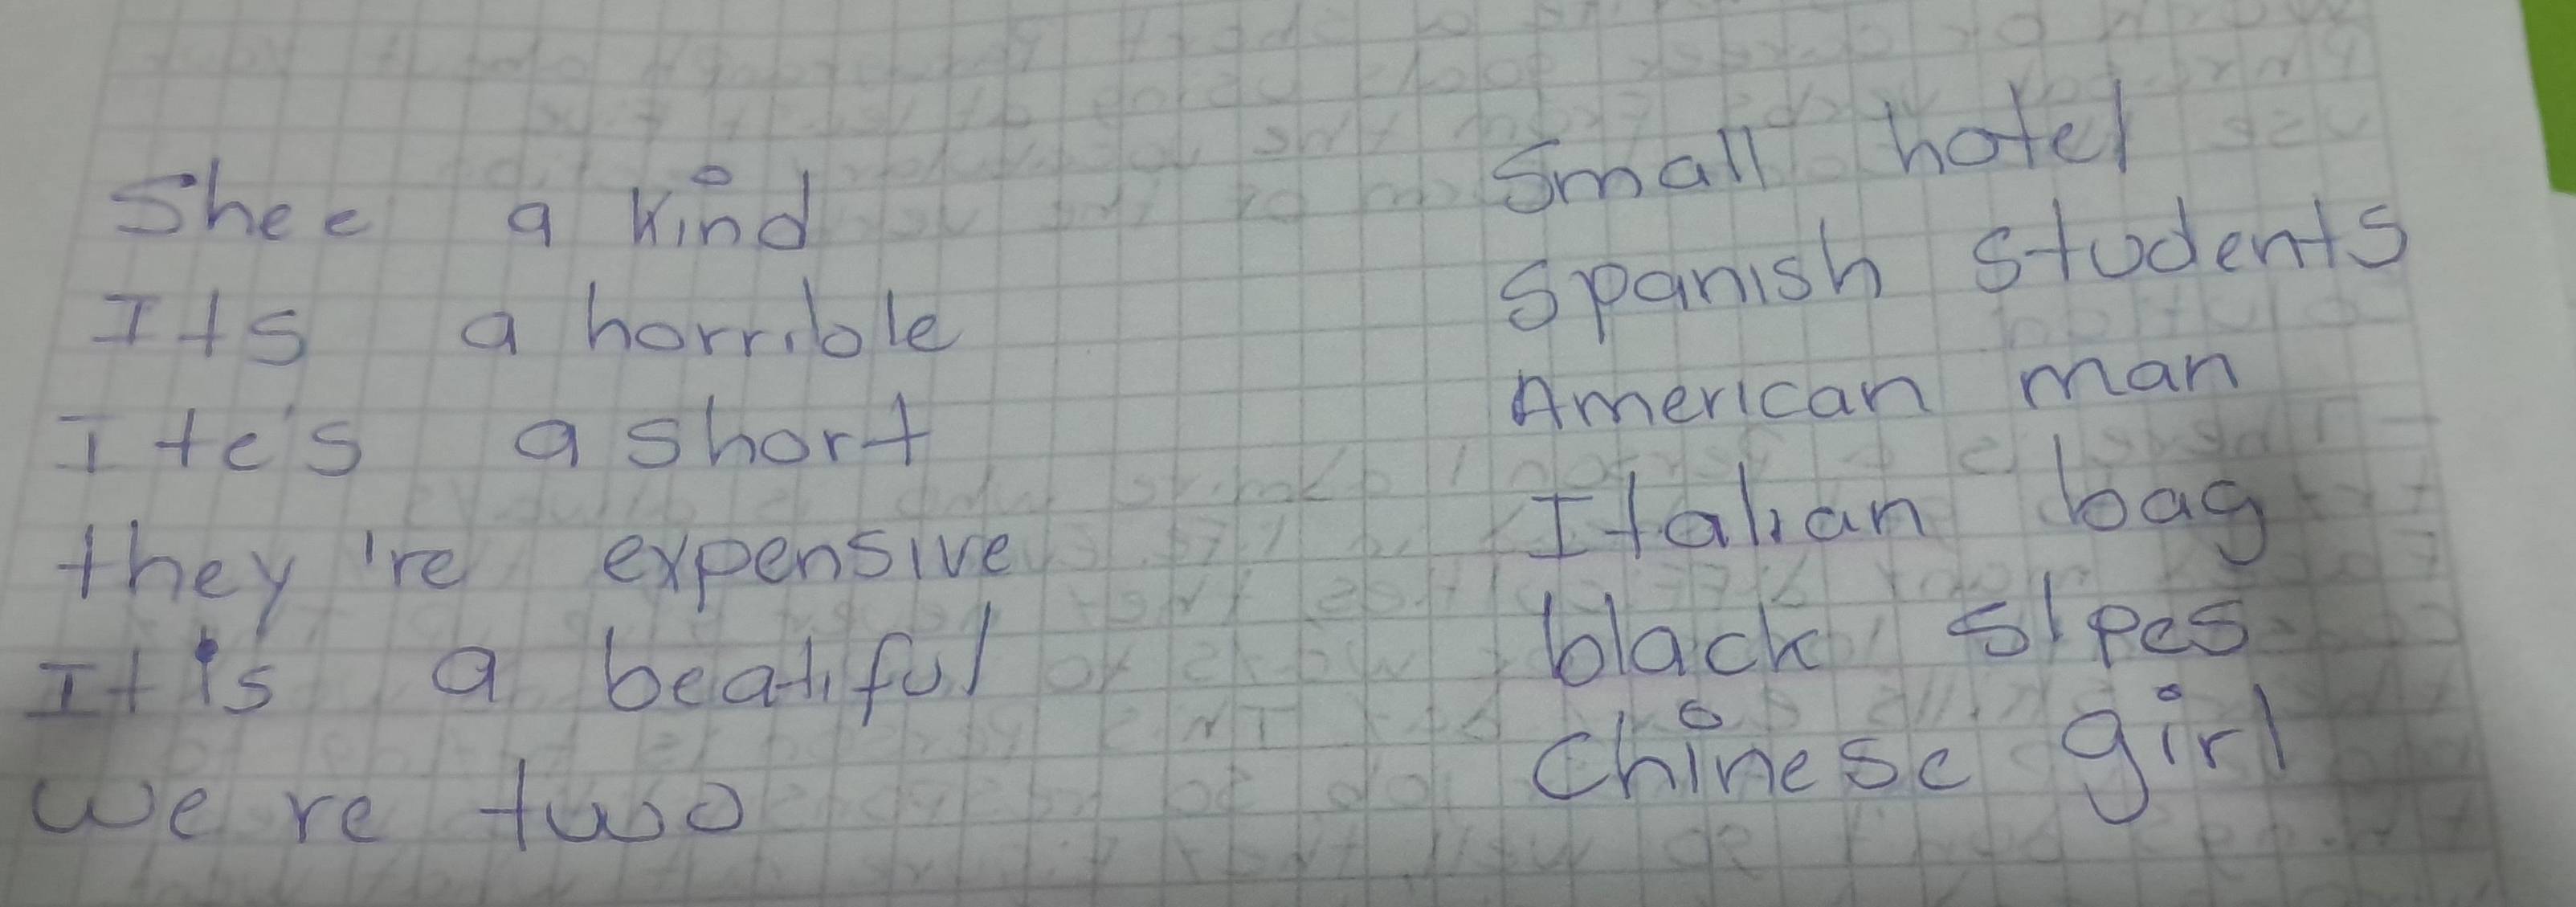 Shee a kind
Its a horrible
Ite's a short
they're expensive
It's a beatiful
we re two
Small hotel
Spanish students
American man
Italian bag
black slpes
Chinese girl